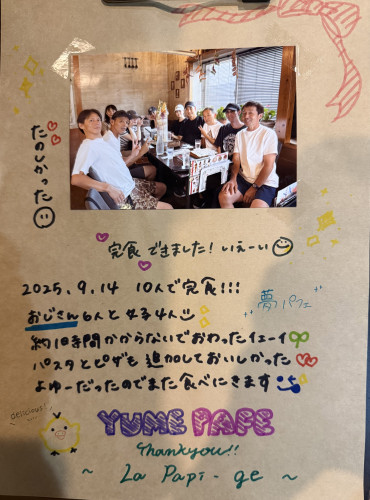 たのしかった
完食できました！いえーい
2025.9.14 10人で完食!!!
おじさん6人と女子4人
夢パフェ
約1時間かからないでおわったイェーイ
パスタとピザも追加しておいしかった
よゆーだったのでまた食べにきます
delicious!
YUME PAFE
Thankyou!!
~ La Papi-ge ~